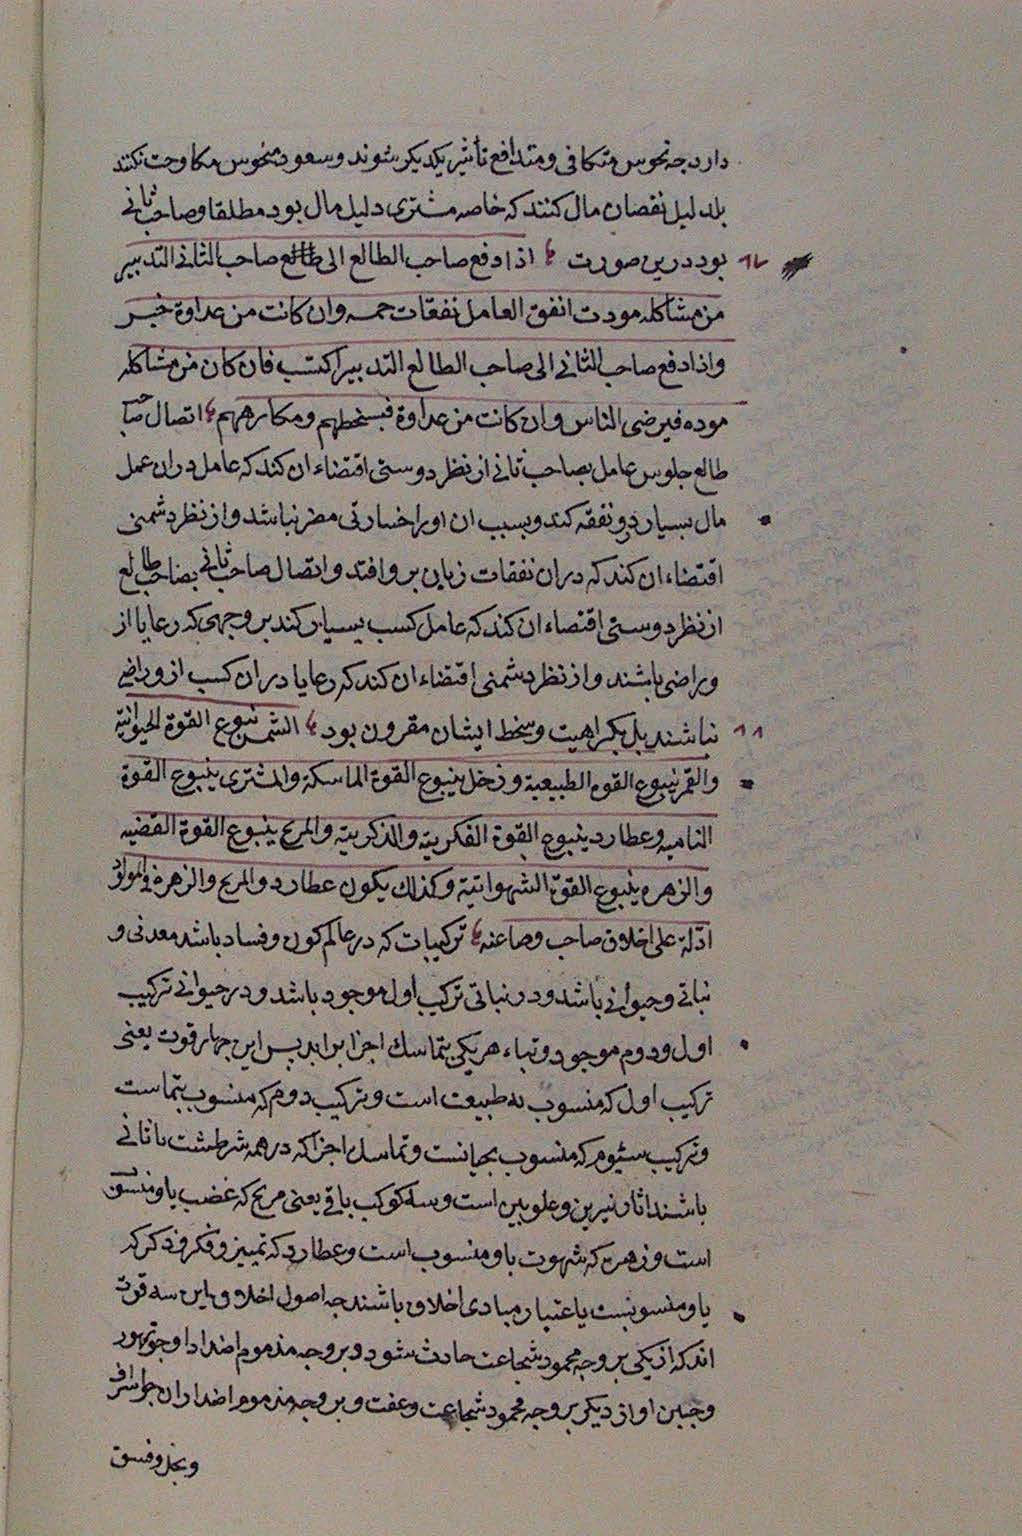 دارد چه نحوس متکافی و متدافع تأثیر یکدیکر شوند و سعود منحوس مکاوحت نکنند
بلدلیل نقصان مال کنند که خاصه مشتری دلیل مال بود مطلقا و صاحب ثانی
۸۷ بود درین صورت اذا دفع صاحب الطالع الی طالع صاحب الثانی التدبیر
من مشاکله مودت انفق العامل نفقات جمه وان کانت من عداوة خبر
واذا دفع صاحب الثانی الی صاحب الطالع التدبیر اکتسب فان کان من مشاکله
موده فیرضی الناس وان کانت من عداوة فبسخطهم ومکارههم اتصال صاحب
طالع جلوس عامل بصاحب ثانی از نظر دوستی اقتضاء ان کند که عامل دران عمل
مال بسیار نفقه کند و بسبب ان اورا خسارتی مضر نباشد و از نظر دشمنی
اقتضاء ان کند که دران نفقات زیان برو افتد و اتصال صاحب ثانی بصاحب طالع
از نظر دوستی اقتضاء ان کند که عامل کسب بسیار کند بر وجهی که رعایا از
و راضی باشند و از نظر دشمنی اقتضاء ان کند که رعایا دران کسب ازو راضی
۸۸ نباشند بل بکراهیت و سخط ایشان مقرون بود الشمس ینبوع القوة الحیوانیة
والقمر ینبوع القوه الطبیعیة و زحل ینبوع القوة الماسکة والمشتری ینبوع القوة
النامیه وعطارد ینبوع القوة الفکریة والذکریة والمریخ ینبوع القوة الغضبیه
والزهره ینبوع القوة الشهوانیة وکذلك یکون عطارد والمریخ والزهرة فی الموالید
ادلة علی اخلاق صاحب وصناعته ترکیبات که در عالم کون و فساد باشد معدنی و
نباتی و حیوانی باشد و در نباتی ترکیب اول موجود باشد و در حیوانی ترکیب
اول و دوم موجود و بقاء هر یکی بتماسك اجزا براند پس این چهار قوت یعنی
ترکیب اول که منسوب به طبیعت است و ترکیب دوم که منسوب بنماست
و ترکیب سیوم که منسوب بحیاتست و تماسك اجزا که در همه شرطست تا ثانی
باشند اثار نیرین و علویین است و سه کوکب باقی یعنی مریخ که غضب باو منسوب
است و زهره که شهوت باو منسوب است و عطارد که تمییز و فکر و ذکر که
باو منسوبست باعتبار مبادی اخلاق باشند چه اصول اخلاق این سه قوت
اند که از یکی بر وجه محمود شجاعت حادث شود و بر وجه مذموم اضداد او چو تهور
و جبن و از دیکر بر وجه محمود شجاعت و عفت و بر وجه مذموم اضداد ان چو اسراف
و بخل و فسق